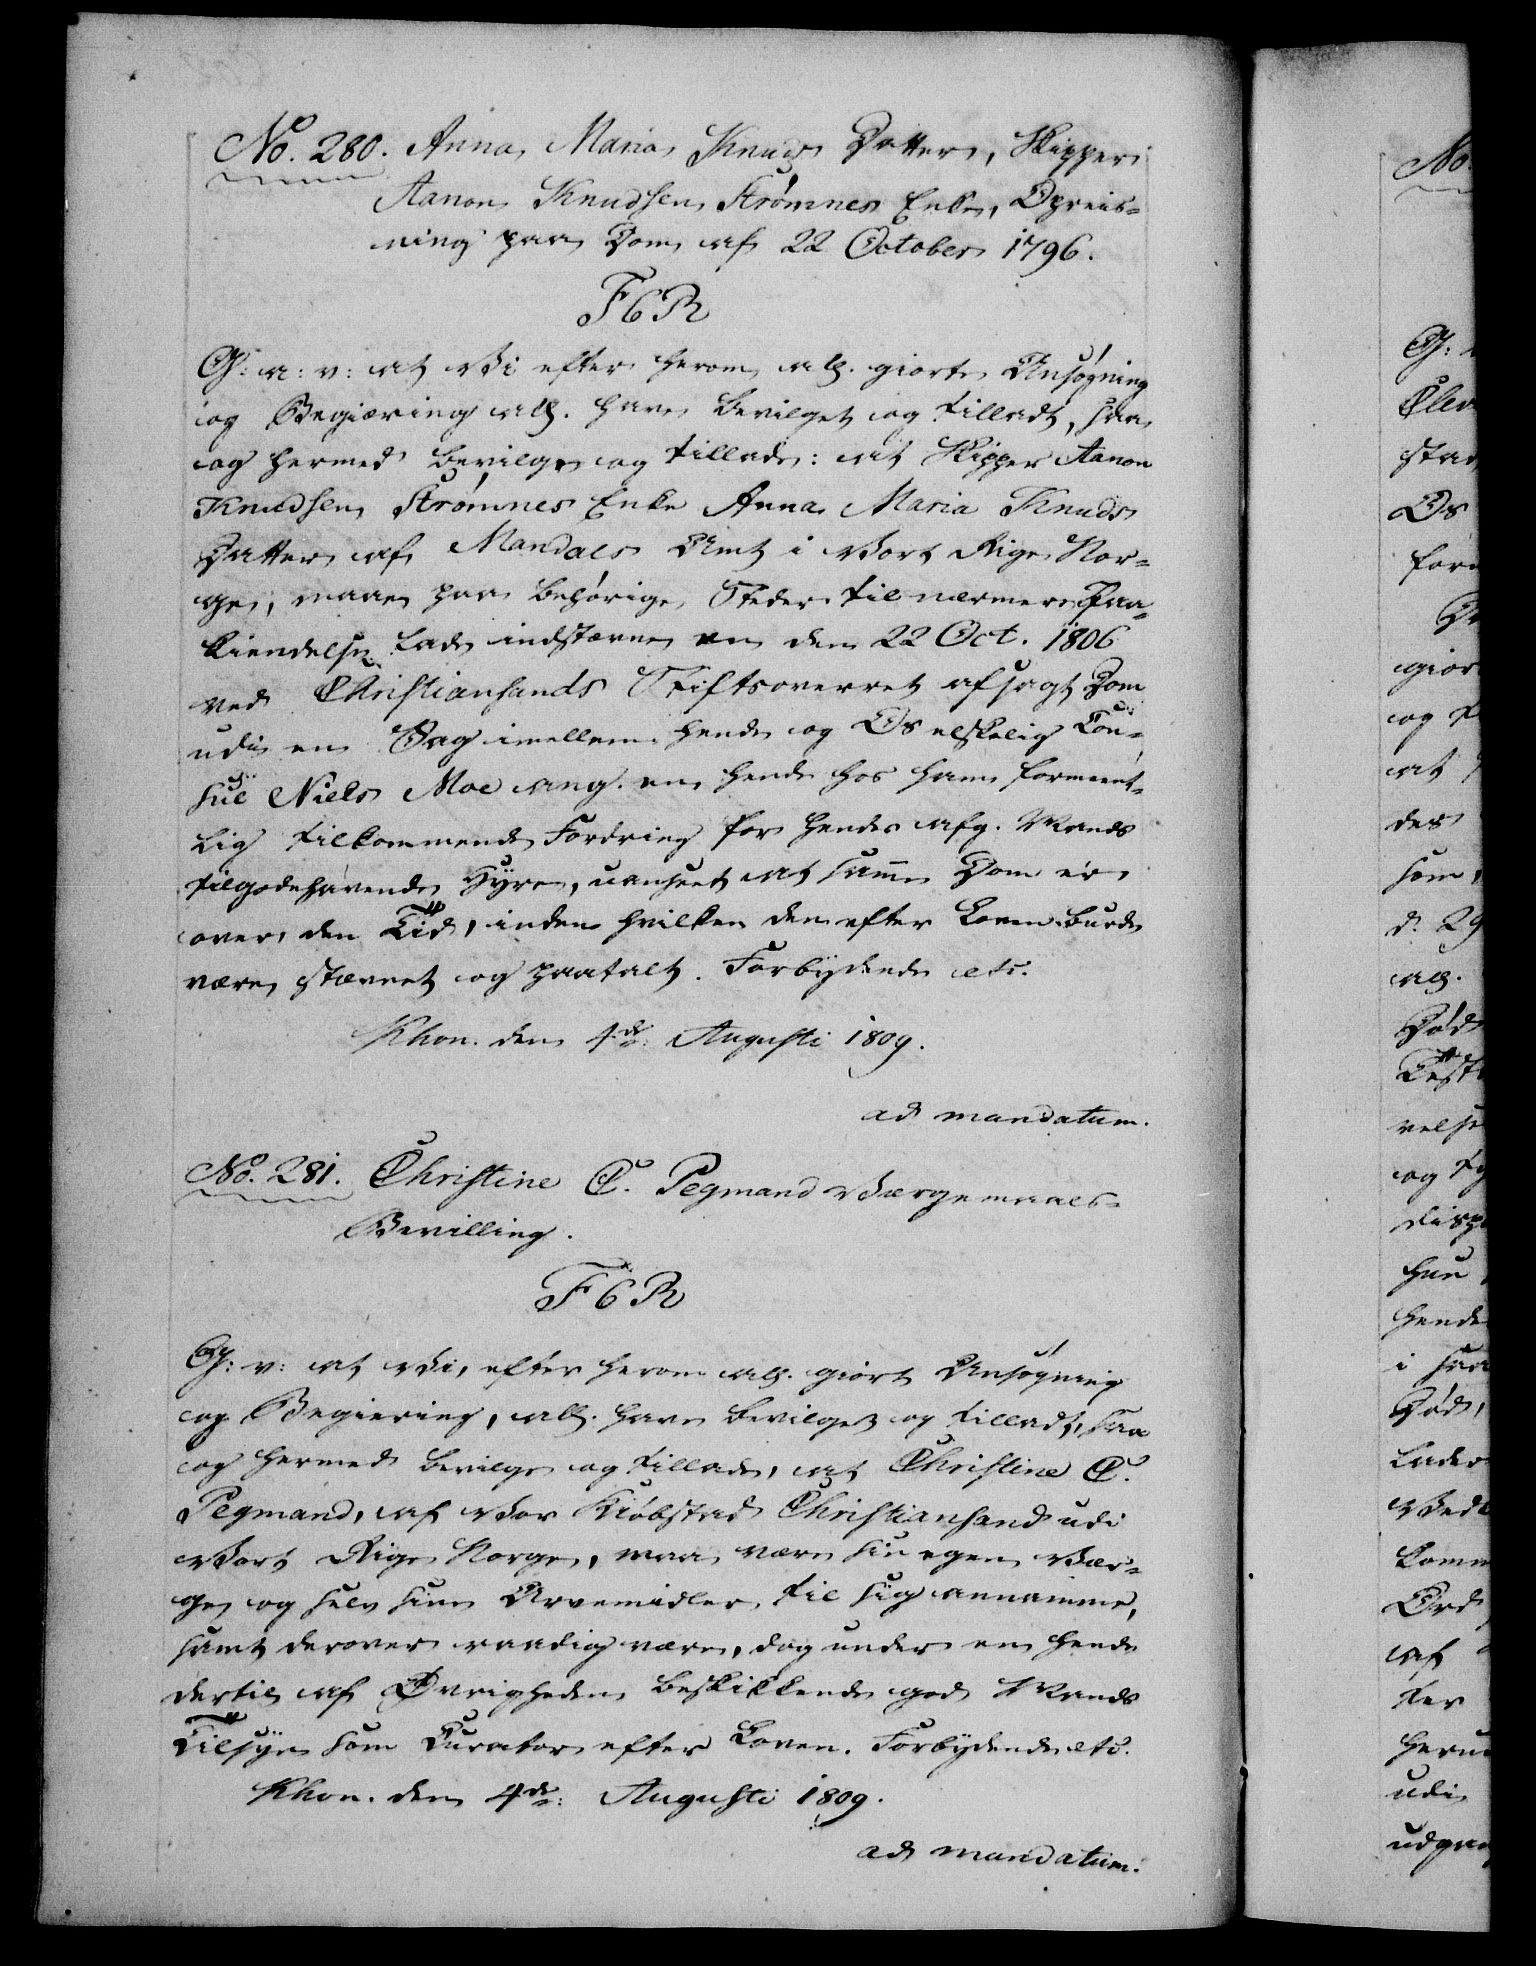 No. 280. Anna Maria Knuds Datter, Skipper
Aanon Knudsen Strømnes Enke, Opreis-
ning paa Dom af 22 October 1796.
F6R
G: a: v: at Vi efter herom all. giorte Ansøgning
og Begiæring all. have bevilget og tilladt, saa
og hermed bevilge og tillade: at Skipper Aanon
Knudsen Strømnes Enke Anna Maria Knuds
Datter af Mandals Amt i Vort Rige Nor-
ge, maae paa behørige Steder til nærmere Paa-
kiendelse lade indstævne en den 22 Oct. 1806
ved Christiansands Stiftsoverret afsagt Dom
udi en Sag imellem hende og Os elskelig Con-
sul Niels Moe ang. en hende hos ham formeent-
lig tilkommende Fordring for hendes afg. Mands
tilgodehavende Hyre, uanseet at samme Dom er
over den Tid, inden hvilken den efter Loven burde
være stævnet og paatalt. Forbydende etc.
Khvn. den 4de: Augusti 1809.
ad mandatum.
No. 281. Christine C. Pegmand Værgemaals-
Bevilling.
F6R
G: v: at Vi, efter herom all. giort Ansøgning
og Begiering, all. have bevilget og tilladt, saa
og hermed bevilge og tillade, at Christine C.
Pegmand, af Vor Kiøbstad Christiansand udi
Vort Rige Norge, maa være sin egen Vær-
ge og selv sine Arvemidler til sig annamme,
samt derover raadig være, dog under en hende
dertil af Øvrigheden beskikkende god Mands
Tilsyn som Curator efter Loven. Forbydende etc.
Khvn. den 4de: Augusti 1809.
ad mandatum.
No.
G:
Os
og
at
des
som,
d. 29
all.
Død
og
hun
hende
i saa
Død,
af
udi